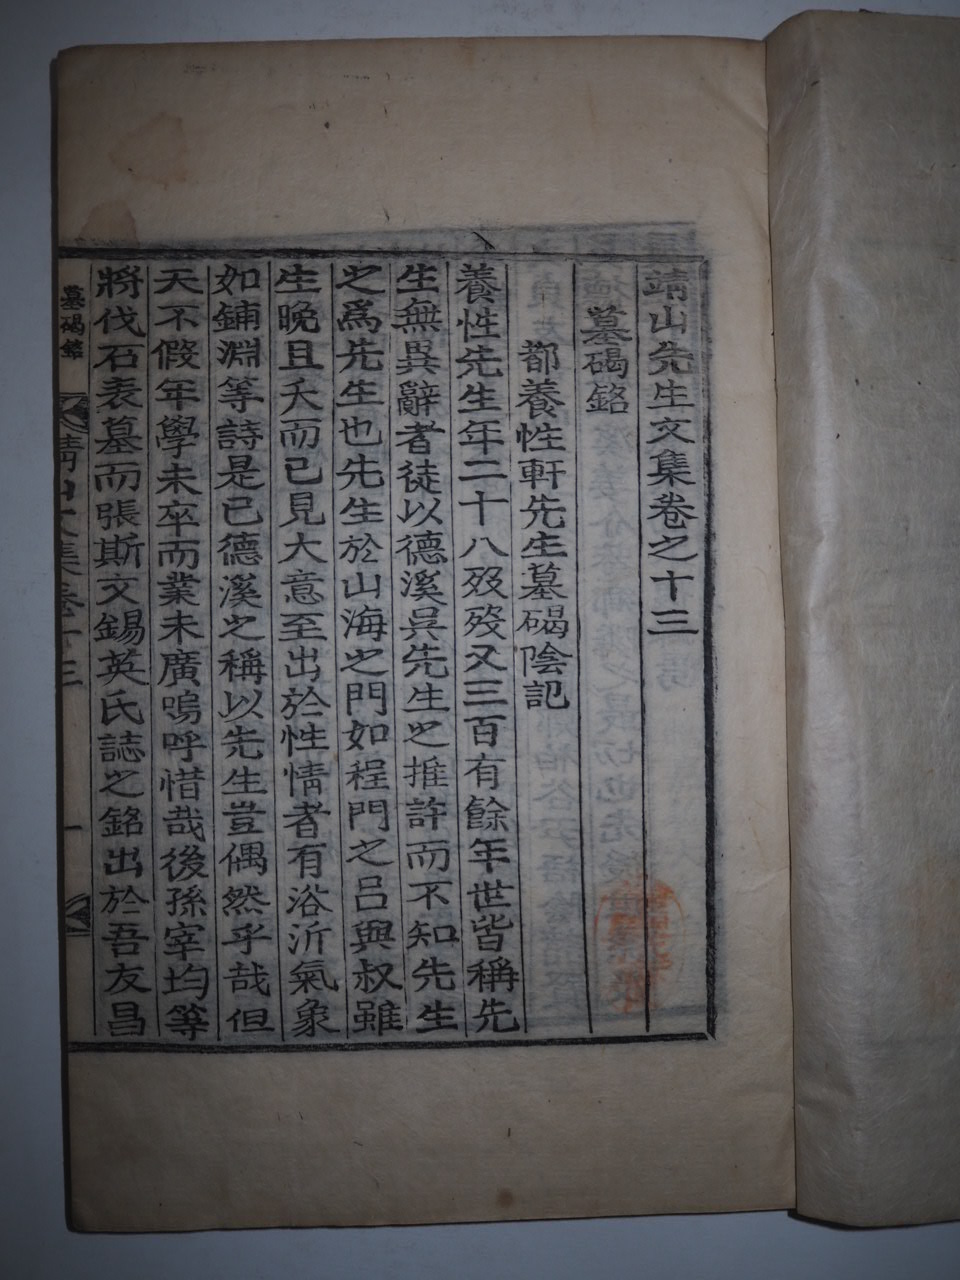 靖山先生文集卷之十三
墓碣銘
都養性軒先生墓碣陰記
養性先生年二十八歿歿又三百有餘年世皆稱先
生無異辭者徒以德溪吳先生之推許而不知先生
之爲先生也先生於山海之門如程門之呂與叔雖
生晩且夭而已見大意至出於性情者有浴沂氣象
如鋪淵等詩是已德溪之稱以先生豈偶然乎哉但
天不假年學未卒而業未廣嗚呼惜哉後孫宰均等
將伐石表墓而張斯文錫英氏誌之銘出於吾友昌
墓碣銘
靖山文集卷十三
一